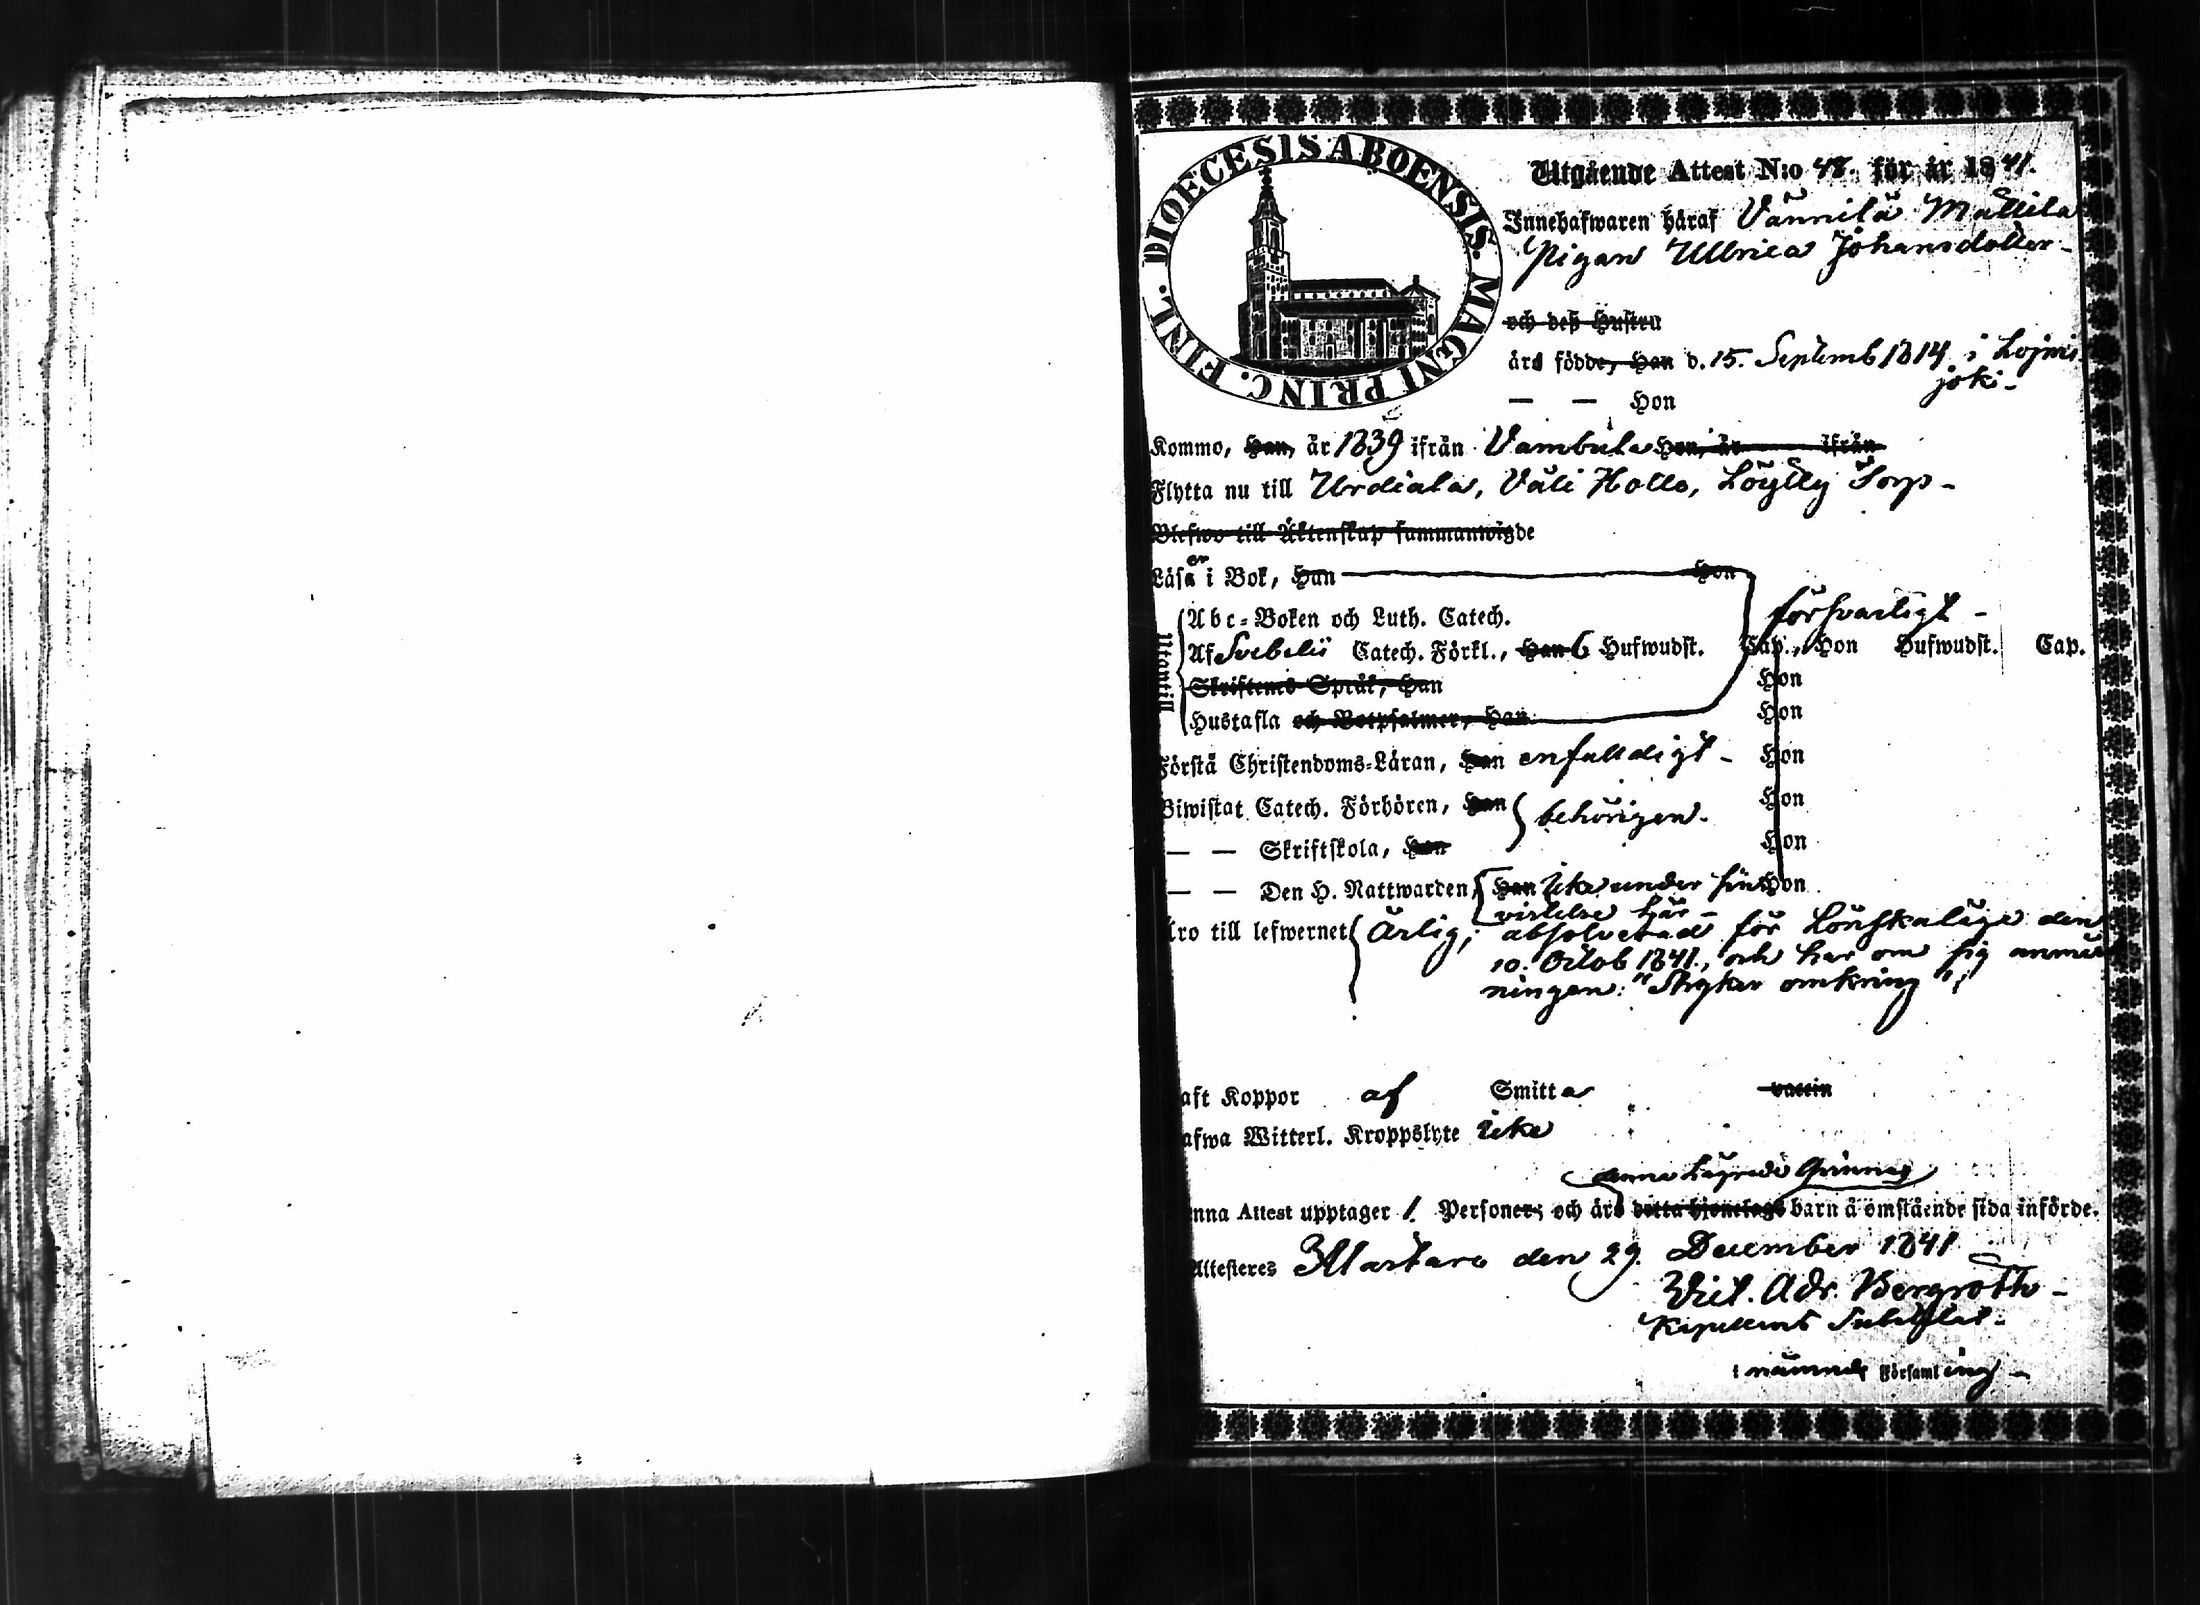 DIOECESIS ABOENSIS. MAGNI PRINC. FINL.
Utgående Attest N:o 48. för år 1841.
Innehafwaren häraf Vännilä Mattila
Pigan Ullrica Johansdotter
och deß Hustru
äro födde, Han d. 15. Septemb 1814 i Loimi
joki
— — Hon
Kommo, Han, år 1839 ifrån Vambula Hon, år ifrån
Flytta nu till Urdiala, Väli Hollo, Löylly Torp
Blefwo till Äktenskap sammanwigde
Läser i Bok, Han Hon
försvarligt
Abc-Boken och Luth. Catech.
Utantill
Af Svebelii Catech. Förkl., Han 6 Hufwudst. Cap., Hon Hufwudst. Cap.
Skriftenes Språk, Han Hon
Hustafla och Botpsalmer, Han Hon
Förstå Christendoms-Läran, Han enfalldigt Hon
Biwistat Catech. Förhören, Han behörigen. Hon
— — Skriftskola, Han Hon
— — Den H. Nattwarden, Han icke under sin Hon
vistelse här
äro till lefwernet Ärlig; absolverad för Lönskaläge den
10. Octob 1841, och har om sig anmär
ningen: "Stryker omkring";
aft Koppor af Smitta vaccin
afwa Witterl. Kroppslyte icke
denna
nna Attest upptager 1. Personer; och äro detta hjonelags barn å omstående sida införde.
Attesteres Marttara den 29. December 1841
Vict. Adr. Bergroth
Kapellans Substitut
i nämnde Församling